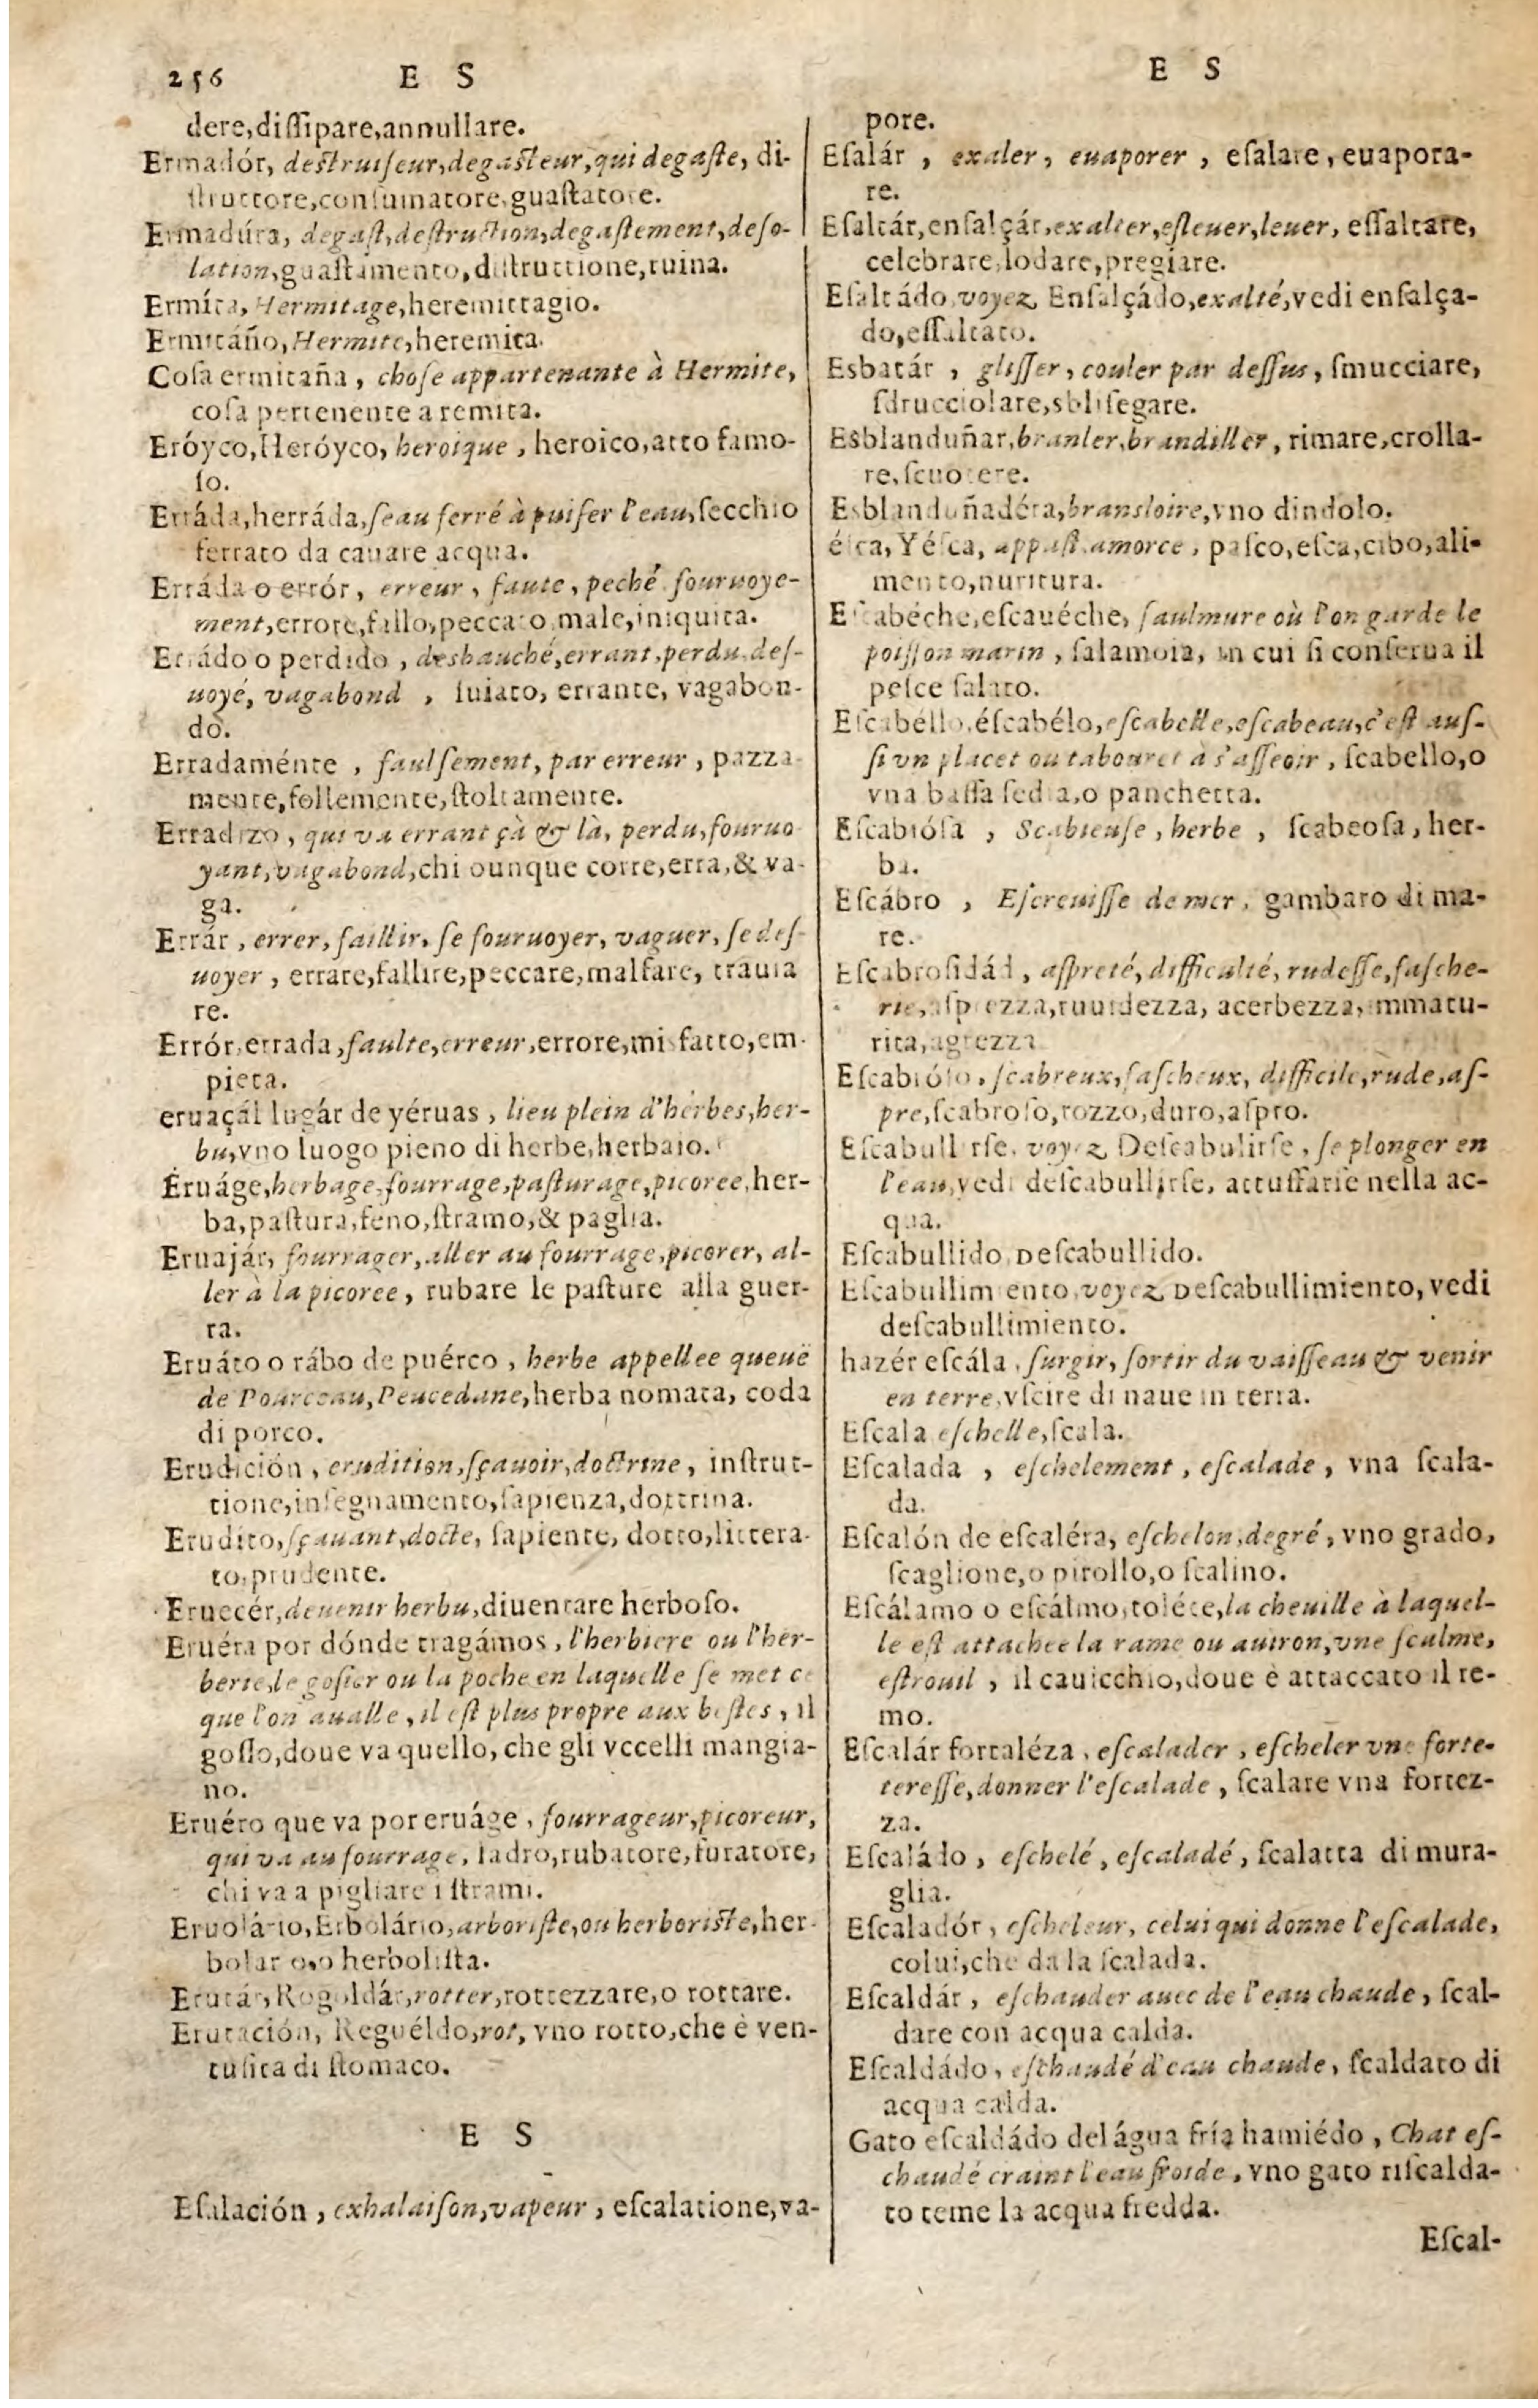 256 E S
dere,dissipare,annullare.
Ermadór, destruiſeur,degasteur,qui degaſte, di-
ſtruttore,conſumatore,guaſtatore.
Ermadúra, degaſt,deſtruction,degaſtement,deſo-
lation,guaſtamento,diſtruttione,ruina.
Ermíta, Hermitage,heremittagio.
Ermitáño,Hermite,heremita.
Coſa ermitaña, choſe appartenante à Hermite,
coſa pertenente a remita.
Eróyco,Heróyco, heroique, heroico,atto famo-
ſo.
Erráda,herráda,ſeau ferré à puiſer l'eau,ſecchio
ferrato da cauare acqua.
Erráda o errór, erreur, faute, peché, fouruoye-
ment,errore,fallo,peccato,male,iniquita.
Errádo o perdido, desbauché,errant,perdu,deſ-
uoyé, vagabond, ſuiato, errante, vagabon-
do.
Erradaménte, faulſement, par erreur, pazza-
mente,follemente,ſtoltamente.
Erradizo, qui va errant çà & là, perdu,fouruo
yant,vagabond,chi ounque corre,erra,& va-
ga.
Errár, errer, faillir, ſe fouruoyer, vaguer, ſe deſ-
uoyer, errare,fallire,peccare,malfare, trauia
re.
Errór,errada,faulte,erreur,errore,misfatto,em-
pieta.
eruaçál lugár de yéruas, lieu plein d'herbes,her-
bu,vno luogo pieno di herbe,herbaio.
Eruáge,herbage,fourrage,paſturage,picoree,her-
ba,paſtura,feno,ſtramo,& paglia.
Eruajár, fourrager,aller au fourrage,picorer, al-
ler à la picoree, rubare le paſture alla guer-
ra.
Eruáto o rábo de puérco, herbe appellee queuë
de Pourceau,Peucedane,herba nomata, coda
di porco.
Erudición, erudition,ſçauoir,doctrine, inſtrut-
tione,inſegnamento,ſapienza,dottrina.
Erudito,ſçauant,docte, ſapiente, dotto,littera-
to,prudente.
Eruecér,deuenir herbu,diuentare herboſo.
Eruéra por dónde tragámos, l'herbiere ou l'her-
berie,le goſier ou la poche en laquelle ſe met ce
que l'on aualle, il eſt plus propre aux beſtes, il
goſſo,doue va quello, che gli vccelli mangia-
no.
Eruéro que va por eruáge, fourrageur,picoreur,
qui va au fourrage, ladro,rubatore,furatore,
chi va a pigliare i ſtrami.
Eruolário,Erbolário,arboriſte,ou herboriste,her-
bolario,o herboliſta.
Erutár, Rogoldár,rotter,rottezzare,o rottare.
Erutación, Reguéldo,rot, vno rotto,che è ven-
tuſita di ſtomaco.
E S
Eſalación, exhalaiſon,vapeur, eſcalatione,va-
E S
pore.
Eſalár, exaler, euaporer, eſalare, euapora-
re.
Eſaltár,enſalçár,exalter,eſleuer,leuer, eſſaltare,
celebrare,lodare,pregiare.
Eſaltádo,voyez Enſalçádo,exalté,vedi enſalça-
do,eſſaltato.
Esbatár, gliſſer, couler par deſſus, ſmucciare,
ſdrucciolare,sbliſegare.
Esblanduñar,branler,brandiller, rimare,crolla-
re,ſcuotere.
Esblanduñadéra,bransloire,vno dindolo.
éſca, Yéſca, appaſt,amorce, paſco,eſca,cibo,ali-
mento,nuritura.
Eſcabéche,eſcauéche, ſaulmure où l'on garde le
poiſſon marin, ſalamoia, in cui ſi conſerua il
peſce ſalato.
Eſcabéllo,éſcabélo,eſcabelle,eſcabeau,c'eſt auſ-
ſi vn placet ou tabouret à s'aſſeoir, ſcabello,o
vna baſſa ſedia,o panchetta.
Eſcabióſa, Scabieuſe, herbe, ſcabeoſa, her-
ba.
Eſcábro, Eſcreuiſſe de mer, gambaro di ma-
re.
Eſcabroſidád, aſpreté, difficulté, rudeſſe,faſche-
rie,aſprezza,ruuidezza, acerbezza, immatu-
rita,agrezza
Eſcabróſo, ſcabreux,faſcheux, difficile,rude,aſ-
pre,ſcabroſo,rozzo,duro,aſpro.
Eſcabullirſe, voyez Deſcabulirſe, ſe plonger en
l'eau,vedi deſcabullirſe, attuffarſe nella ac-
qua.
Eſcabullido,Deſcabullido.
Eſcabullimiento,voyez Deſcabullimiento, vedi
deſcabullimiento.
hazér eſcála, ſurgir, ſortir du vaiſſeau & venir
en terre,vſcire di naue in terra.
Eſcala eſchelle,ſcala.
Eſcalada, eſchelement, eſcalade, vna ſcala-
da.
Eſcalón de eſcaléra, eſchelon,degré, vno grado,
ſcaglione,o pirollo,o ſcalino.
Eſcálamo o eſcálmo,toléte,la cheuille à laquel-
le eſt attachee la rame ou auiron,vne ſcalme,
eſtrouil, il cauicchio,doue è attaccato il re-
mo.
Eſcalár fortaléza, eſcalader, eſcheler vne forte-
tereſſe,donner l'eſcalade, ſcalare vna fortez-
za.
Eſcaládo, eſchelé, eſcaladé, ſcalatta di mura-
glia.
Eſcaladór, eſcheleur, celui qui donne l'eſcalade,
colui,che da la ſcalada.
Eſcaldár, eſchauder auec de l'eau chaude, ſcal-
dare con acqua calda.
Eſcaldádo, eſchaudé d'eau chaude, ſcaldato di
acqua calda.
Gato eſcaldádo del água fría hamiédo, Chat eſ-
chaudé craint l'eau froide, vno gato riſcalda-
to teme la acqua fredda.
Eſcal-